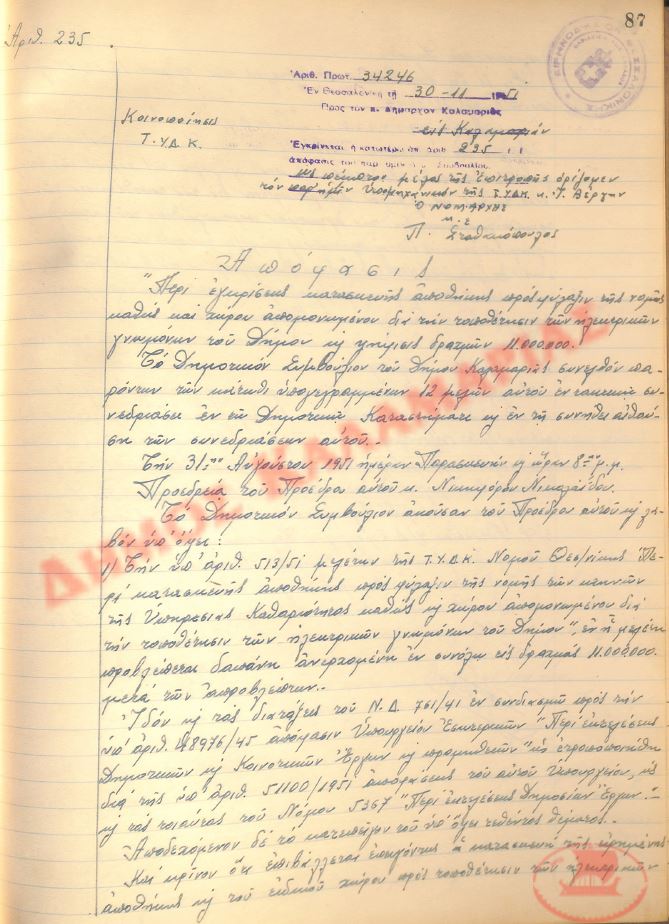 87
Ἀριθ. 235
Ἀριθ. Πρωτ. 34246
Ἐν Θεσσαλονίκῃ τῇ 30-11 1951
Πρὸς τὸν κ. Δήμαρχον Καλαμαριᾶς
εἰς Καλαμαριάν
Κοινοποίησις
Τ.Υ.Δ.Κ.
Ἐγκρίνεται ἡ κατωτέρω ὑπ' ἀριθ. 235
ἀπόφασις τοῦ παρ' ὑμῖν Συμβουλίου
ὡς πέμπτον μέλος τῆς ἐπιτροπῆς ὁρίζομεν
τὸν παρ' ἡμῖν Ὑπομηχανικὸν τῆς Τ.Υ.Δ.Κ. κ.
Ὁ ΝΟΜΑΡΧΗΣ
Μ.Ε
Π.
Ἀπόφασις
"Περὶ ἐγκρίσεως κατασκευῆς ἀποθήκης πρὸς φύλαξιν τῆς νομῆς
καθὼς καὶ χώρου ἀπομονωμένου διὰ τὴν τοποθέτησιν τῶν ἠλεκτρικῶν
γνωμόνων τοῦ Δήμου κ ψηφίσεως δραχμῶν 11.000.000.
Τὸ Δημοτικὸν Συμβούλιον τοῦ Δήμου Καλαμαριᾶς συνελθὸν πα-
ρόντων τῶν κάτωθι ὑπογεγραμμένων 12 μελῶν αὐτοῦ ἐν τακτικῇ συ-
νεδριάσει ἐν τῷ Δημοτικῷ Καταστήματι κ ἐν τῇ συνήθει αἰθού-
σῃ τῶν συνεδριάσεων αὐτοῦ.
Τὴν 31ην Αὐγούστου 1951 ἡμέραν Παρασκευὴν κ ὥραν 8ην μ.μ.
Προεδρείᾳ τοῦ Προέδρου αὐτοῦ κ. Νικηφόρου Νικολαΐδου.
Τὸ Δημοτικὸν Συμβούλιον ἀκοῦσαν τοῦ Προέδρου αὐτοῦ κ λα-
βὸν ὑπ' ὄψει:
1) Τὴν ὑπ' ἀριθ. 513/51 μελέτην τῆς Τ.Υ.Δ.Κ. Νομοῦ Θεσ/νίκης "Πε-
ρὶ κατασκευῆς ἀποθήκης πρὸς φύλαξιν τῆς νομῆς τῶν κτηνῶν
τῆς Ὑπηρεσίας Καθαριότητος καθὼς κ χώρου ἀπομονωμένου διὰ
τὴν τοποθέτησιν τῶν ἠλεκτρικῶν γνωμόνων τοῦ Δήμου", ἐν ᾗ μελέτῃ
προβλέπεται δαπάνη ἀνερχομένη ἐν συνόλῳ εἰς δραχμὰς 11.000.000
μετὰ τῶν ἀπροβλέπτων.
Ἰδὸν κ τὰς διατάξεις τοῦ Ν.Δ. 751/41 ἐν συνδυασμῷ πρὸς τὴν
ὑπ' ἀριθ. 48976/45 ἀπόφασιν Ὑπουργείου Ἐσωτερικῶν "Περὶ ἐκτελέσεως
Δημοτικῶν κ Κοινοτικῶν Ἔργων κ προμηθειῶν" ὡς ἐτροποποιήθη
διὰ τῆς ὑπ' ἀριθ. 51100/1951 ἀποφάσεως τοῦ αὐτοῦ Ὑπουργείου, ὡς
κ τὰς τοιαύτας τοῦ Νόμου 5367 "Περὶ ἐκτελέσεως Δημοσίων Ἔργων".
Ἀποδεχόμενον δὲ τὸ κατεπεῖγον τοῦ ὑπ' ὄψει τεθέντος θέματος.
Καὶ κρῖνον ὅτι ἐπιβάλλεται ἐπειγόντως ἡ κατασκευὴ τῆς εἰρημένης
ἀποθήκης κ τοῦ εἰδικοῦ χώρου πρὸς τοποθέτησιν τῶν ἠλεκτρικῶν